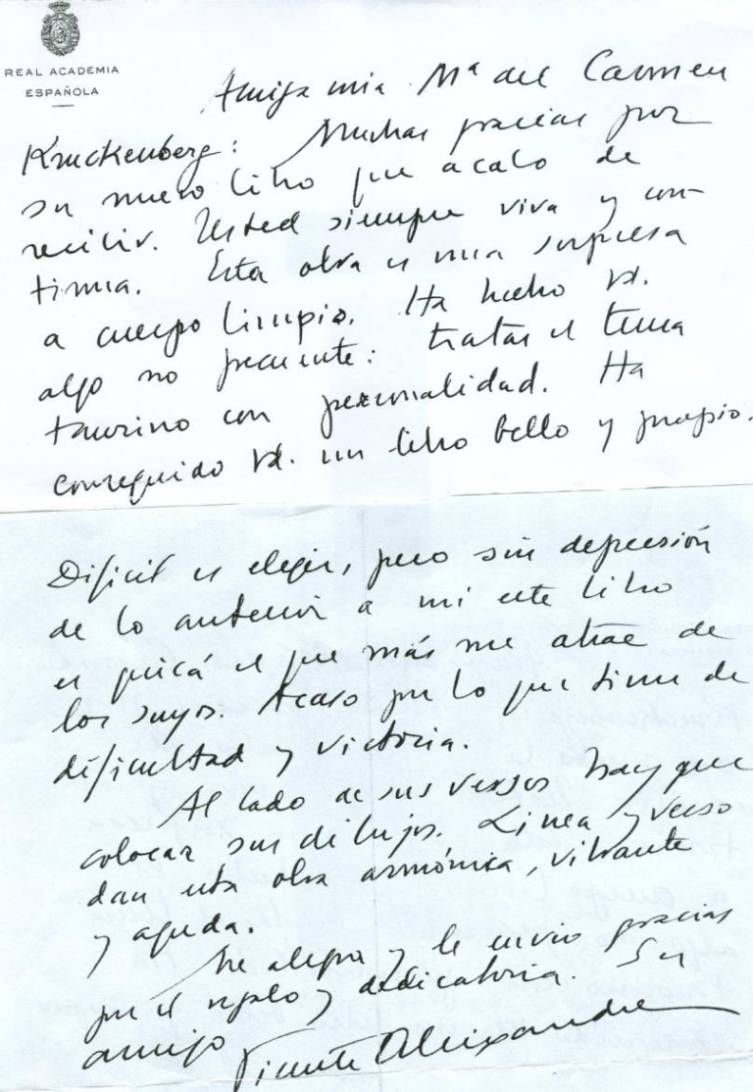 REAL ACADEMIA
ESPAÑOLA
Amiga mia Mª del Carmen
Kruckenberg: Muchas gracias por
su nuevo libro que acabo de
recibir. Usted siempre viva y con-
tinua. Esta obra es una sorpresa
a cuerpo limpio. Ha hecho Vd.
algo no frecuente: tratar el tema
taurino con personalidad. Ha
conseguido Vd. un libro bello y propio.
Dificil es elegir, pero sin depresión
de lo anterior a mi este libro
es quizá el que más me atrae de
los suyos. Acaso por lo que tiene de
dificultad y victoria.
Al lado de sus versos hay que
colocar sus dibujos. Linea y verso
dan esta obra armónica, vibrante
y aguda.
Me alegra y le envio gracias
por el regalo y dedicatoria. Su
amigo
Vicente Aleixandre